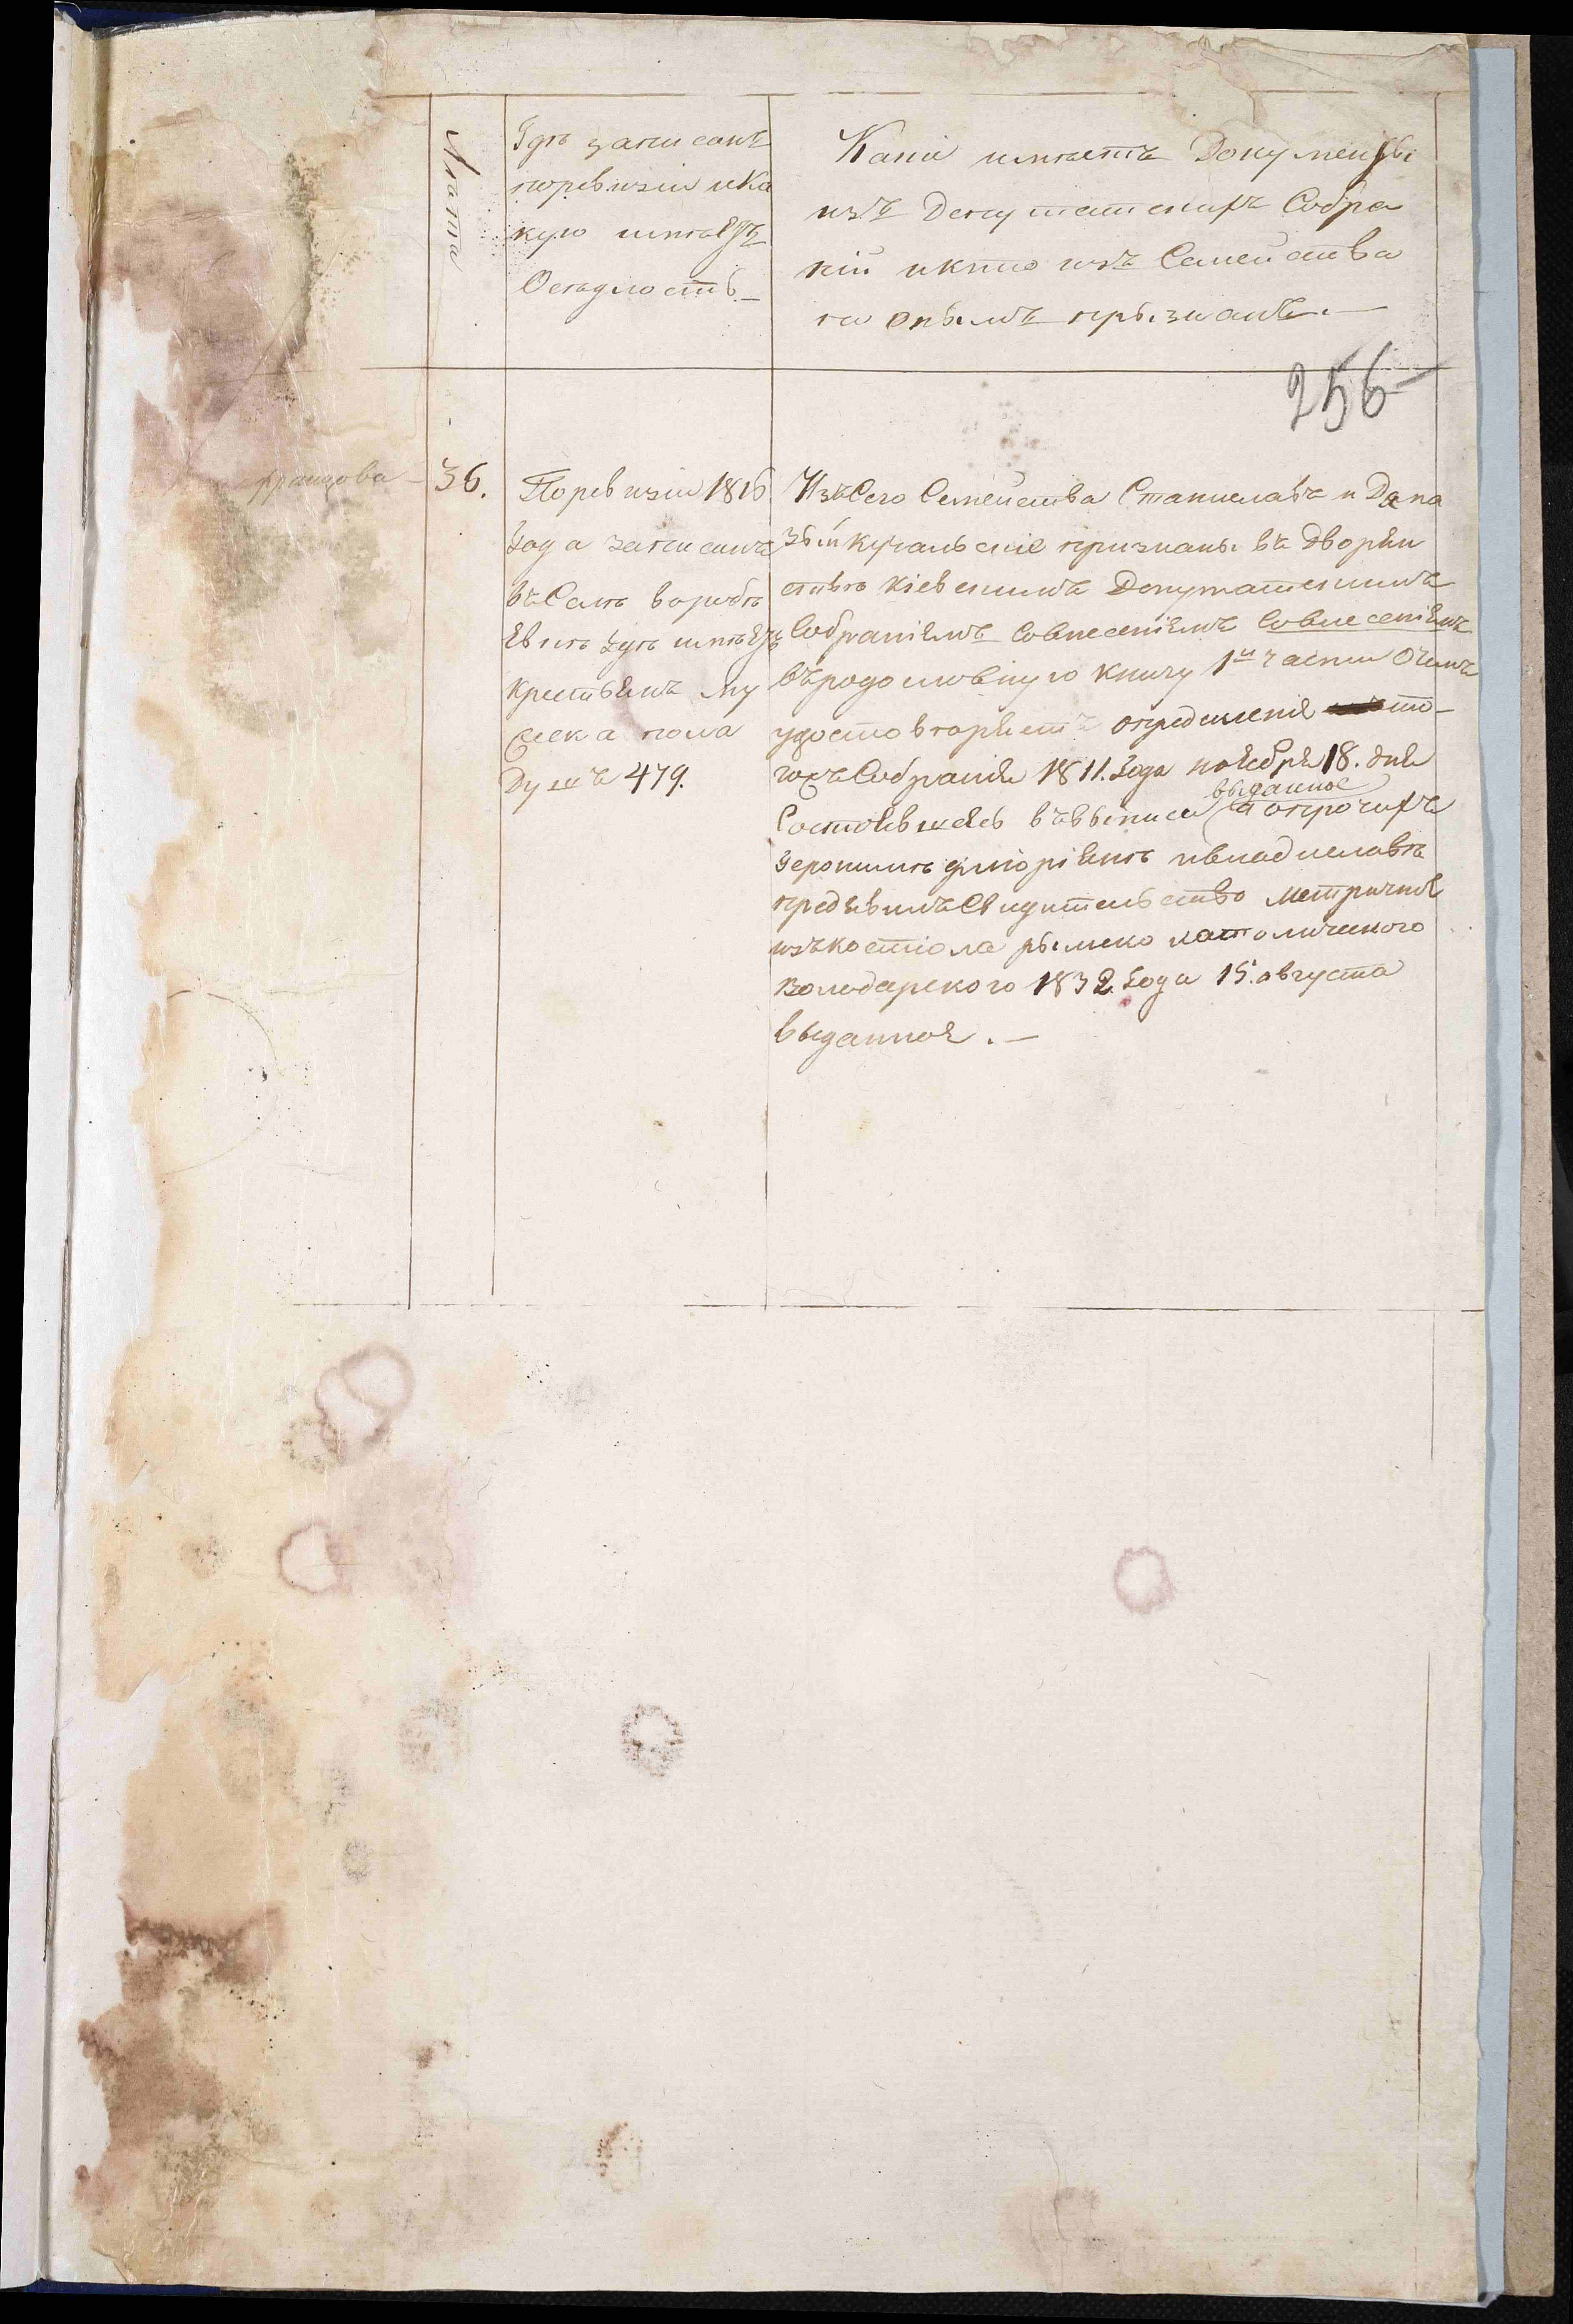 Лѣта
Гдѣ записанъ
поревизіи ика
кую имѣетъ
Осѣдлость
Какіе имѣетъ Документы
изъ Депутатскихъ Собра
ній икто изъ Семейства
по онымъ прызнанъ.
256
францова
36.
Поревизіи 1816
Года записанъ
въСелѣ воробъ
евкѣ гдѣ имѣетъ
крестьянъ му
жеска пола
Душъ 479.
ИзъСего Семейства Станиславъ и Дѧна
зый признаны въ дворян
ствѣ кіевскимъ Депутатскимъ
Собраніемъ Совнесеніемъ Совнесеніемъ
въродословную книгу 1й части Очемъ
удостовѣряетъ опредѣленіе то
гожъСобранія 1811. Года ноября 18. дня
Состоявшеясь въвыписи выданное а опрочихъ
предявилъСвидительство метричное
изъкостіола рымско католического
володарского 1832 Года 15. августа
выданноя.